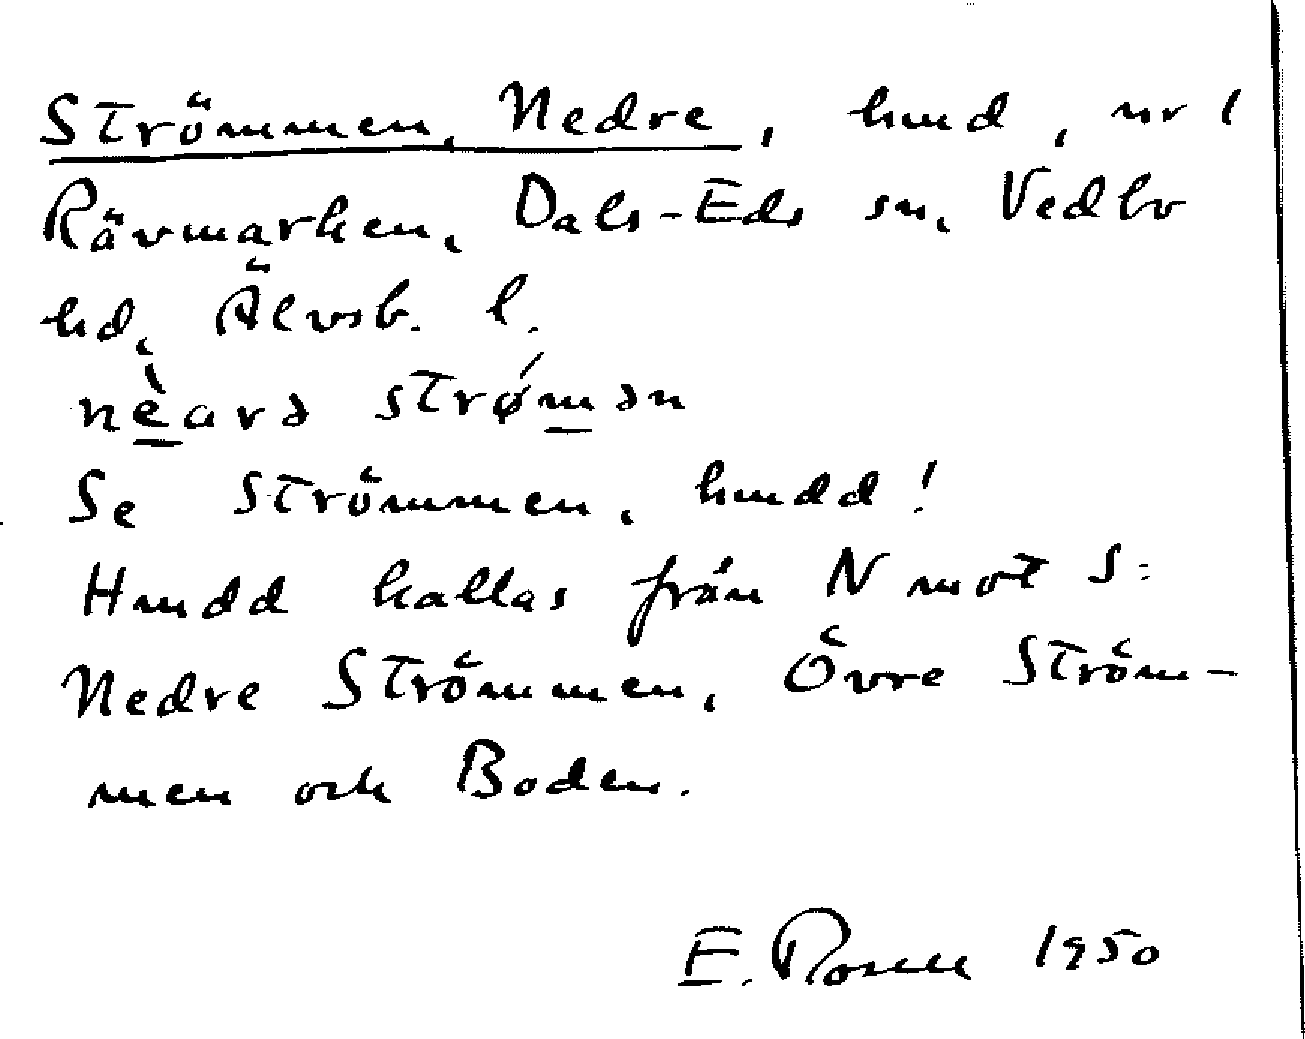 Strömmen, Nedre, hmd, nr 1
Rävmarken, Dals-Eds sn, Vedbo
hd, Älvsb. l.
nèarə strǿmən
Se Strömmen, hmdd!
Hmdd kallas från N mot S:
Nedre Strömmen, Övre Ström-
men och Boden.
E. Rosell 1950